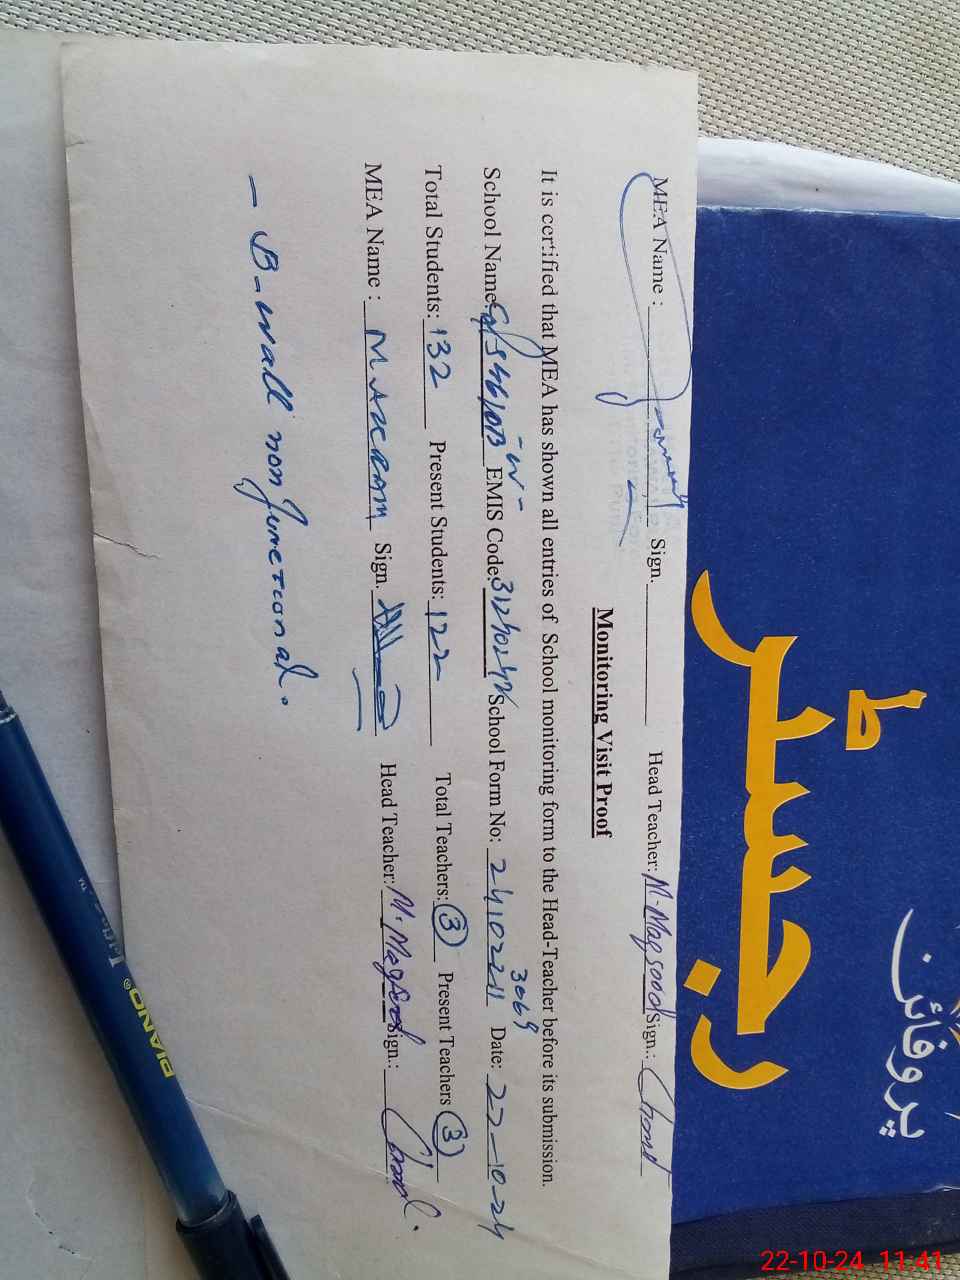 MEA Name : Sign. Head Teacher: M. Maqsood Sign.:
Monitoring Visit Proof
It is certified that MEA has shown all entries of School monitoring form to the Head-Teacher before its submission.
School Name: EMIS Code: School Form No: 24102211 3069 Date: 22-10-24
Total Students: 132 Present Students: 122 Total Teachers: 3 Present Teachers 3
MEA Name : M. AKRAM Sign. Head Teacher: M. Maqsood Sign.:
- B-wall non functional.
رجسٹر
پروفائن
PIANO®
22-10-24 11:41